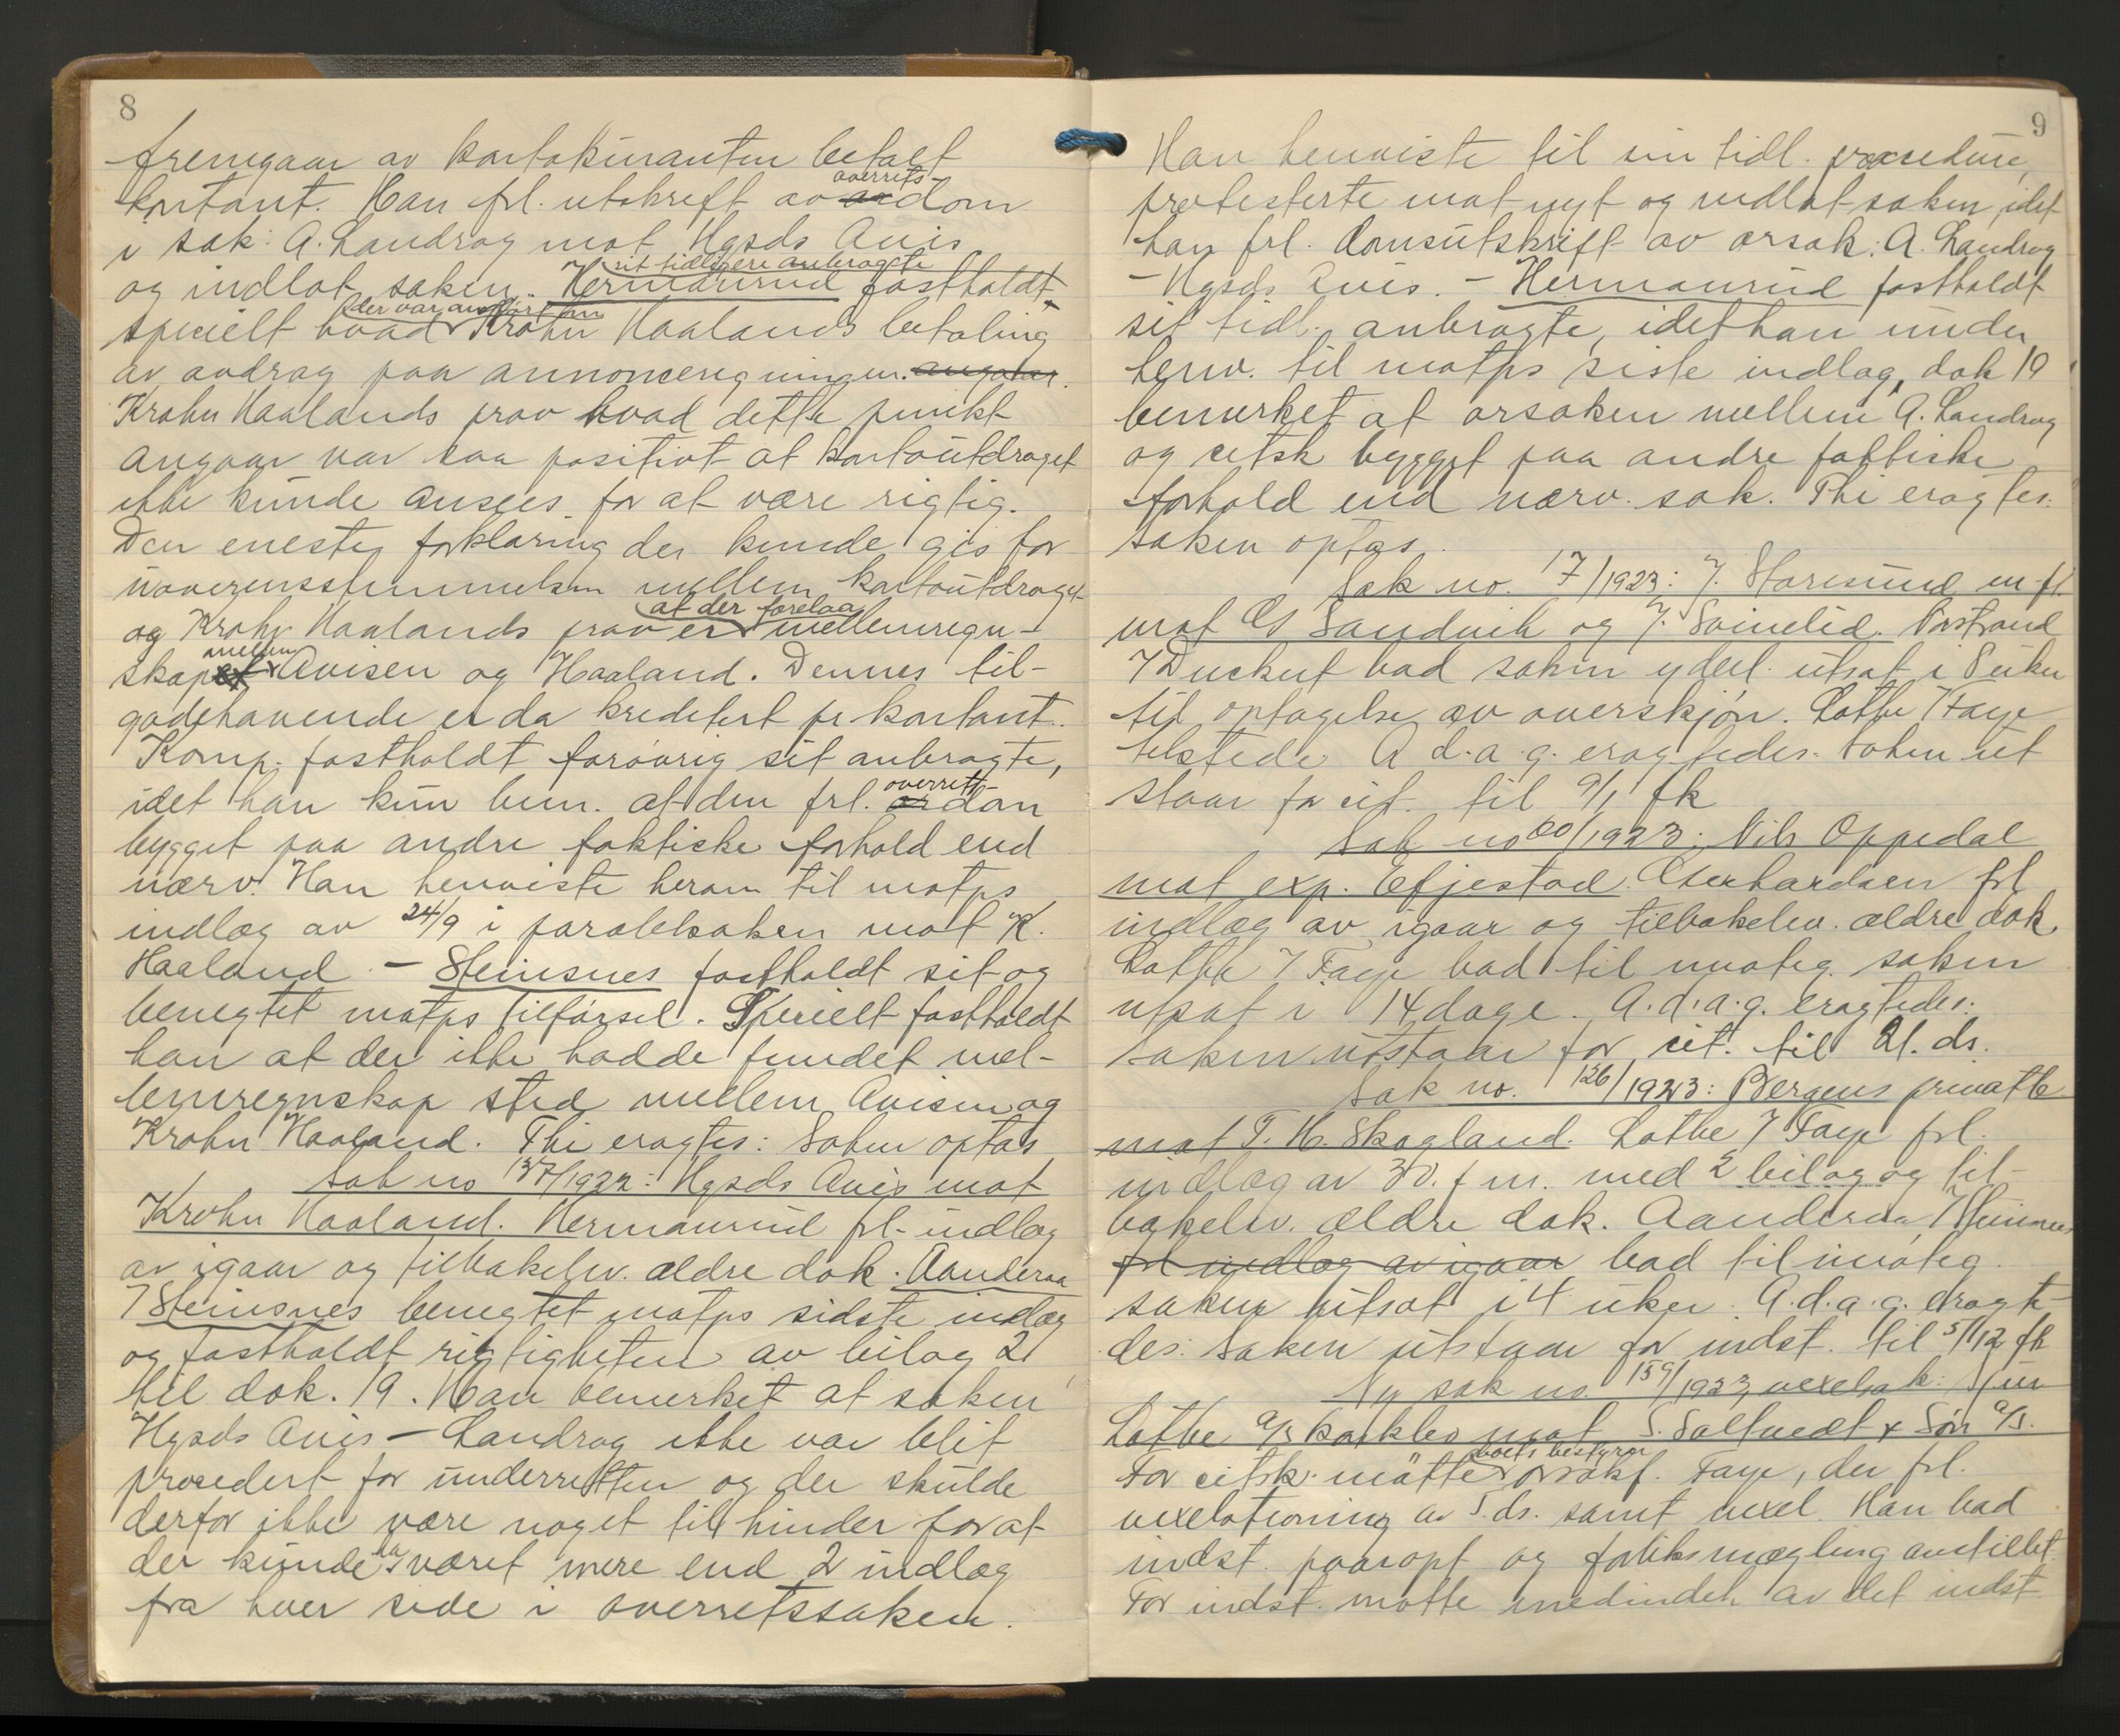 8
fremgaar av kontokuranten betalt
kontant. Han frl. utskrift av overrets dom
i sak: A. Landrog mot Hgsds Avis
og indlot saken. Hermanrud fastholdt
sit tidligere anbragte
specielt hvad der var anført om Krohn Haalands betaling
av avdrag paa annonceregningen. angaar.
Krohn Haalands prov hvad dette punkt
angaar var saa positivt at kontoutdraget
ikke kunde ansees for at være rigtig.
Den eneste forklaring der kunde gis for
uoverensstemmelsen mellem kontoutdraget
og Krohn Haalands prov er at der forelaa mellemregn-
skapet mellem Avisen og Haaland. Dennes til-
godehavende er da kreditert pr kontant.
Komp. fastholdt forøvrig sit anbragte,
idet han kun bem. at den frl. overretts dom
bygget paa andre faktiske forhold end
nærv. Han henviste herom til motps
indlæg av 24/9 i paralelsaken mot K.
Haaland. – Steinsnes fastholdt sit og
benegtet motps tilførsel. Specielt fastholdt
han at der ikke hadde fundet mel-
lemregnskap sted mellem Avisen og
Krohn Haaland. Thi eragtes: Saken optas
Sak no 137/1922: Hgsds Avis mot
Krohn Haaland. Hermanrud frl. indlæg
av igaar og tilbakelev. ældre dok. Aanderaa
/ Steinsnes benegtet motps sidste indlæg
og fastholdt rigtigheten av bilag 2
til dok. 19. Han bemerket at saken
Hgsds Avis – Landrog ikke var blit
procedert for underretten og der skulde
derfor ikke være noget til hinder for at
der kunde ha været mere end 2 indlæg
fra hver side i overretssaken.
9
Han henviste til sin tidl. procedure,
protesterte mot nyt og indlot saken, idet
han frl. domsutskrift av orsak: A. Landrog
– Hgsds Avis. – Hermanrud fastholdt
sit tidl. anbragte, idet han under
henv. til motps siste indlæg, dok 19
bemerket at orsaken mellem A. Landrog
og citsk bygget paa andre faktiske
forhold end nærv. sak. Thi eragtes:
Saken optas.
Sak no. 17/1923: J. Storesund m. fl.
mot O Sandvik og J. Svinelid. Vastrand
/ Duckert bad saken yderl. utsat i 8 uker
til optagelse av overskjøn. Lothe / Faye
tilstede. A. d. a. g. eragtedes: Saken ut
staar for cit. til 9/1 fk
Sak no 60/1923: Nils Oppedal
mot exp. Efjestad. Eberhardsen frl
indlæg av igaar og tilbakelev. ældre dok.
Lothe / Faye bad til imøteg. saken
utsat i 14 dage. A. d. a. g. eragtedes:
Saken utstaar for cit. til 21. ds.
Sak no. 126/1923: Bergens privatb
mot T. H. Skogland. Lothe / Faye frl.
indlæg av 30. f m. med 2 bilag og til-
bakelev. ældre dok. Aanderaa / Steinsnes
frl indlæg av igaar bad til imøteg.
saken utsat i 4 uker. A. d. a. g. eragte-
des: Saken utstaar for indst. til 5/12 fk
Ny sak no. 159/1923 vexelsak:
Lothe a/s konkbo mot S. Saltvedt & Søn a/s.
For citsk. møtte boets bestyrer orsakf. Faye, der frl.
vexelstevning av 5. ds. samt vexel. Han bad
indst. paaropt og forliksmægling anstillet.
For indst. møtte medindeh. av det indst.